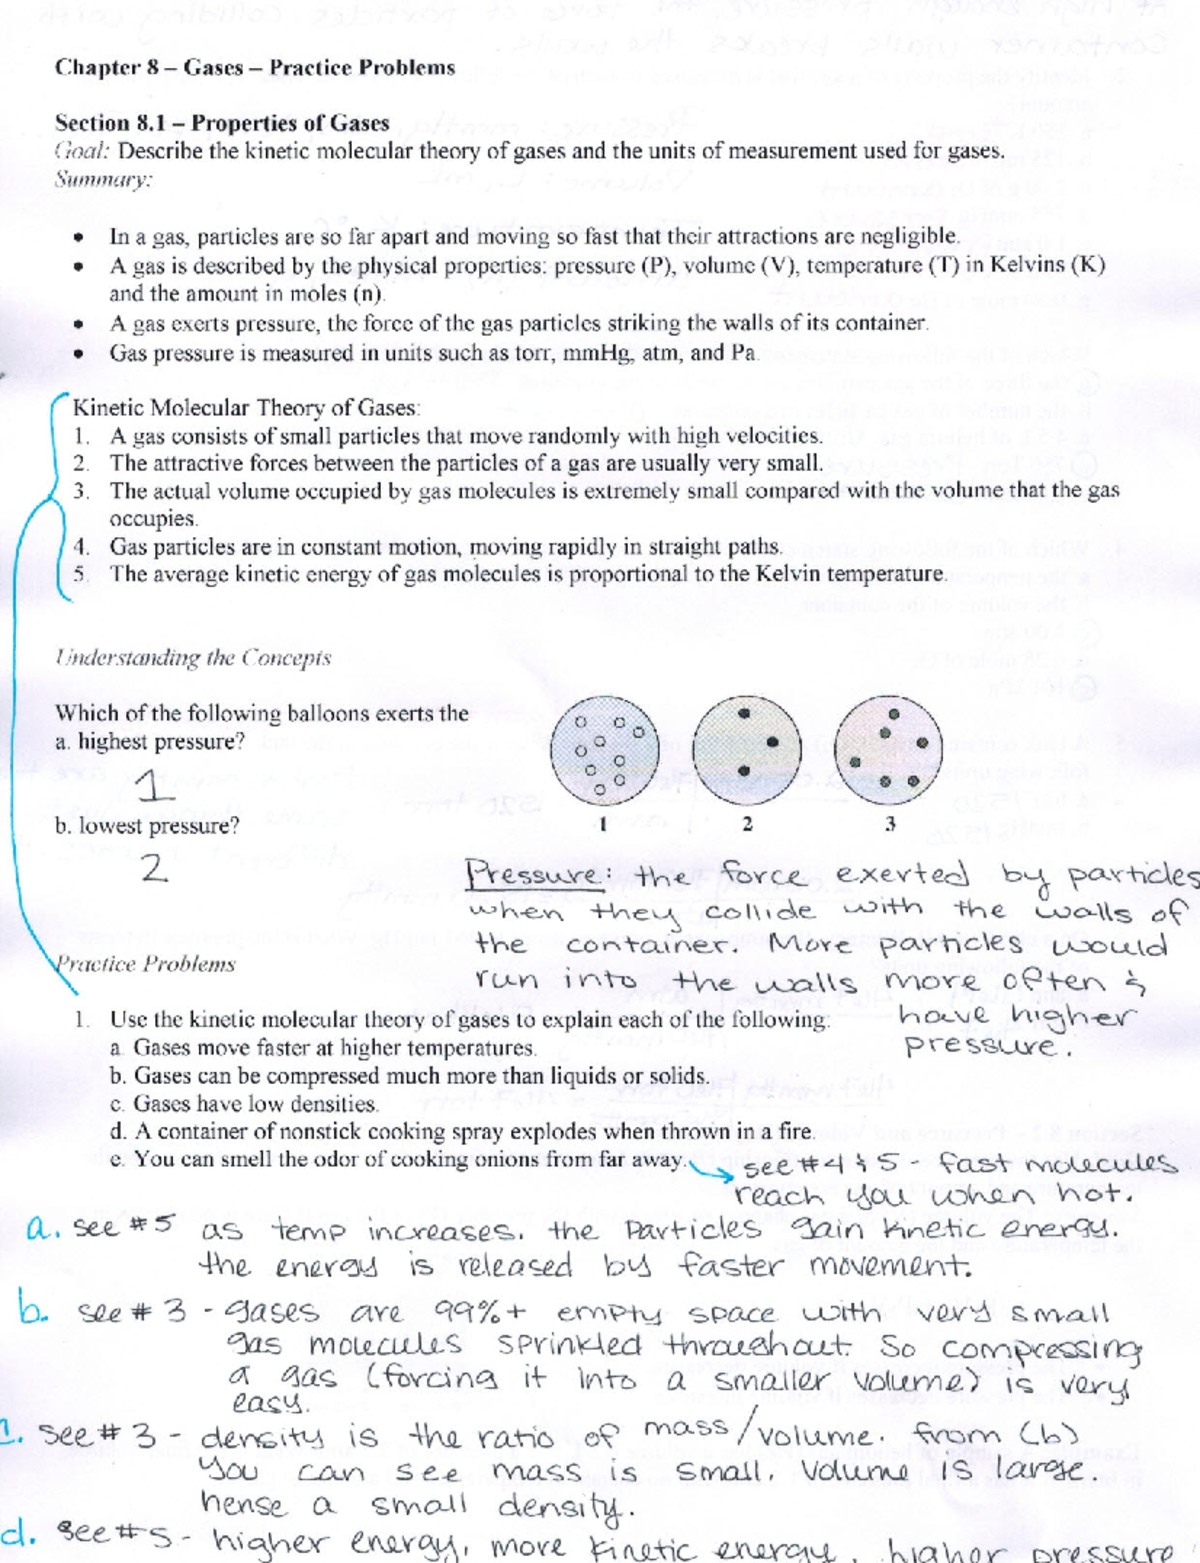 Chapter 8 – Gases – Practice Problems
Section 8.1 – Properties of Gases
Goal: Describe the kinetic molecular theory of gases and the units of measurement used for gases.
Summary:
• In a gas, particles are so far apart and moving so fast that their attractions are negligible.
• A gas is described by the physical properties: pressure (P), volume (V), temperature (T) in Kelvins (K)
and the amount in moles (n).
• A gas exerts pressure, the force of the gas particles striking the walls of its container.
• Gas pressure is measured in units such as torr, mmHg, atm, and Pa.
Kinetic Molecular Theory of Gases:
1. A gas consists of small particles that move randomly with high velocities.
2. The attractive forces between the particles of a gas are usually very small.
3. The actual volume occupied by gas molecules is extremely small compared with the volume that the gas
occupies.
4. Gas particles are in constant motion, moving rapidly in straight paths.
5. The average kinetic energy of gas molecules is proportional to the Kelvin temperature.
Understanding the Concepts
Which of the following balloons exerts the
a. highest pressure?
1
b. lowest pressure?
2
1 2 3
Pressure: the force exerted by particles
when they collide with the walls of
the container. More particles would
run into the walls more often &
have higher
pressure.
Practice Problems
1. Use the kinetic molecular theory of gases to explain each of the following:
a. Gases move faster at higher temperatures.
b. Gases can be compressed much more than liquids or solids.
c. Gases have low densities.
d. A container of nonstick cooking spray explodes when thrown in a fire.
e. You can smell the odor of cooking onions from far away.
see #4 & 5 - fast molecules
reach you when hot.
a. see #5 as temp increases, the particles gain kinetic energy.
the energy is released by faster movement.
b. see # 3 - gases are 99%+ empty space with very small
gas molecules sprinkled throughout. So compressing
a gas (forcing it into a smaller volume) is very
easy.
see # 3 - density is the ratio of mass/volume. from (b)
you can see mass is small, volume is large,
hense a small density.
d. see #5 - higher energy, more kinetic energy, higher pressure